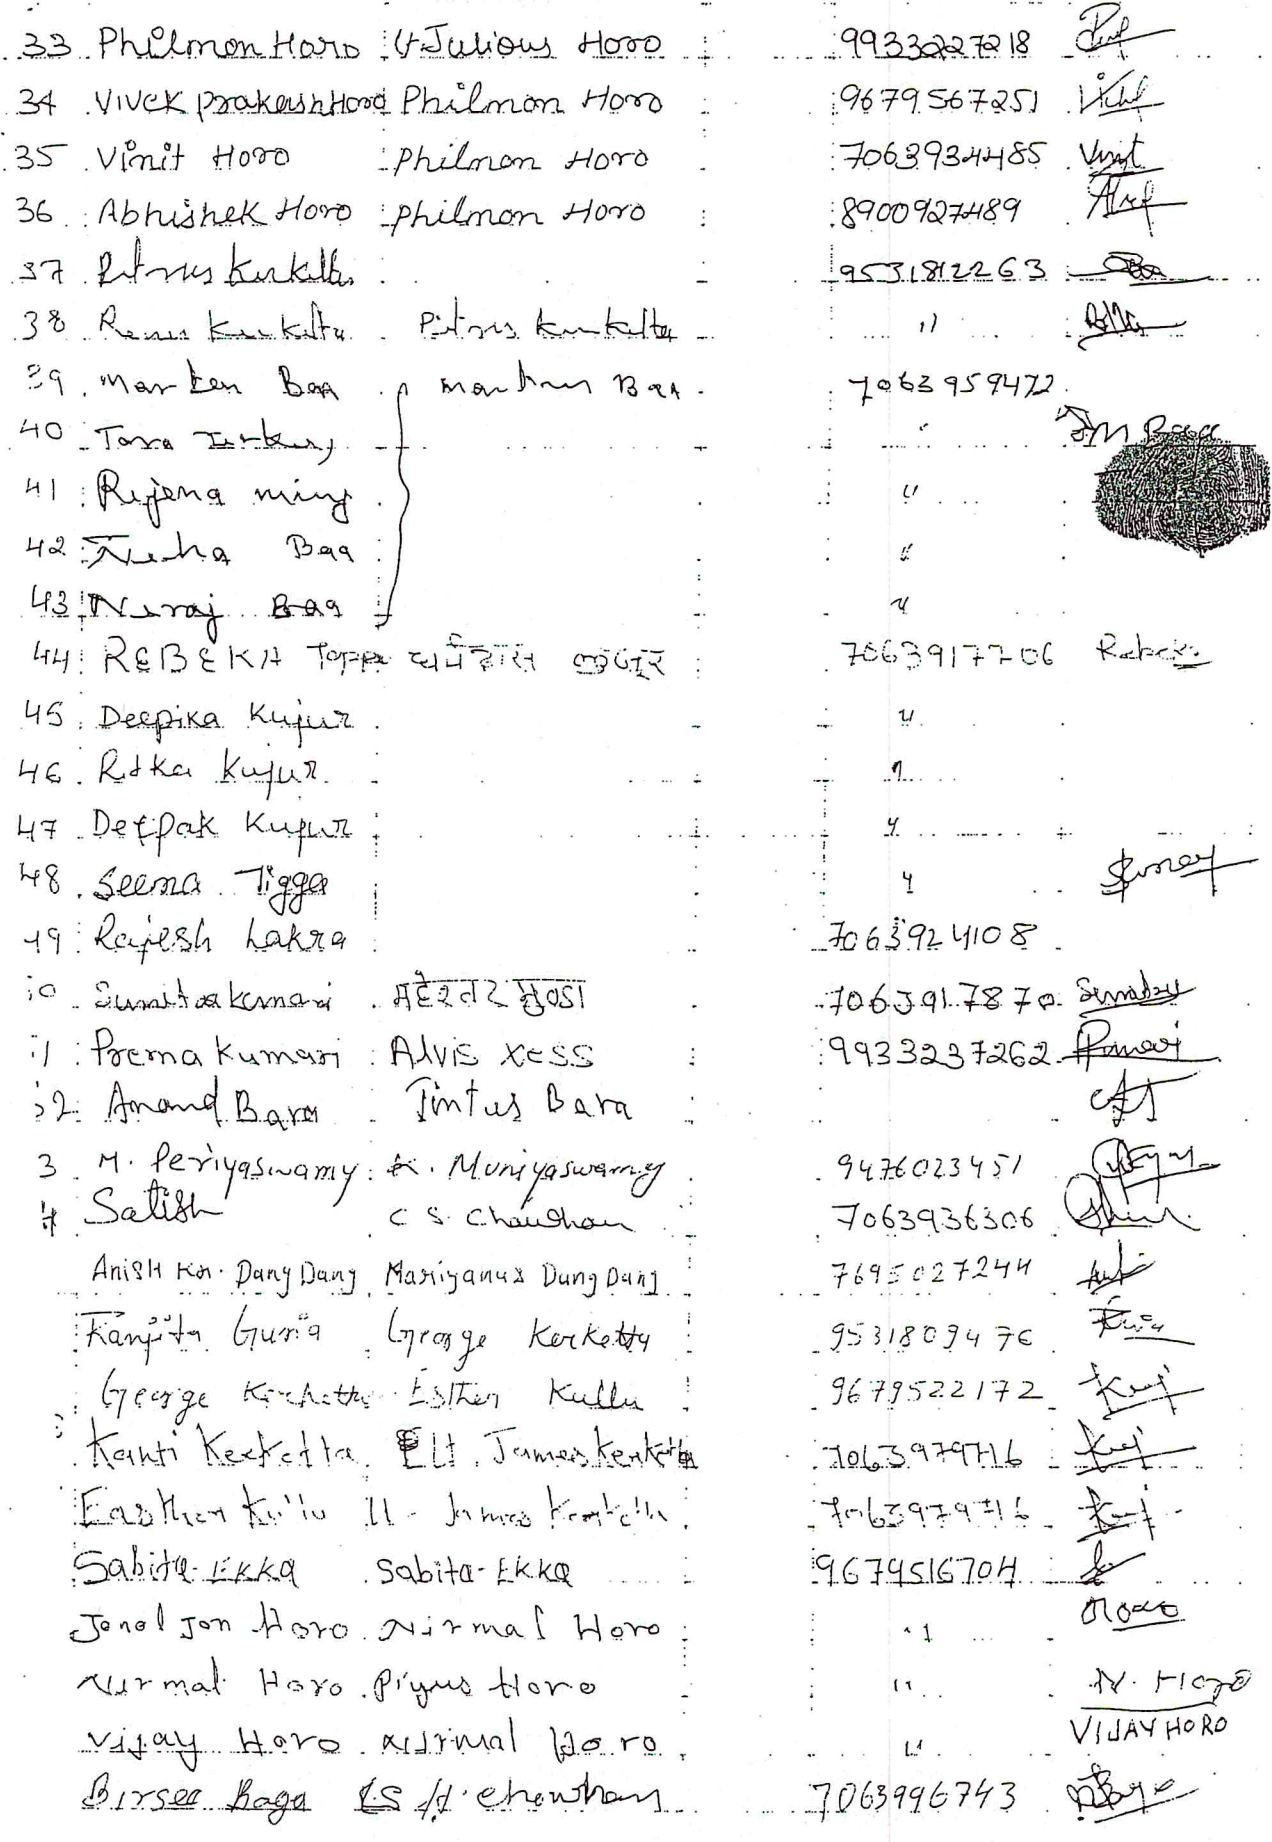 33 Philmon Horo Lt Julious Horo 9933227218
34 Vivek Prakash Horo Philmon Horo 9679567251
35 Vinit Horo Philmon Horo 7063934485 Vinit
36 Abhishek Horo Philmon Horo 8900927489
37 Pitrus Kerketta 9531812263
38 Kerketta Pitrus Kerketta "
39 Marten Baa Martin Baa 7063959472
40 Tara Tirkey " M Baa
41 Rejena minj "
42 Neha Baa "
43 Neraj Baa "
44 REBEKA Toppo कुजूर 7063917706 Rebeka
45 Deepika Kujur "
46 Ritka Kujur "
47 Deepak Kujur "
48 Seema Tigga "
49 Rajesh Lakra 7063924108
Sumitra Kumari महेश्वर मुण्डा 7063917870
Prerna Kumari Alvis Xess 9933237262
Anand Bara Tintus Bara
3 M. Periyaswamy K. Muniyaswamy 9476023451
4 Satish C S. Chauhan 7063936306
Anish Kr. Dung Dung Mariyanus Dung Dung 7695027244
Ranjita Guria George Kerketta 9531809476
George Kerketta Esther Kullu 9679522172
Kanti Kerketta Lt. James Kerketta 7063979716
Easther Kullu Lt. James Kerketta 7063979716
Sabita-EKKA Sabita-EKKA 9679516704
Jonal Jon Horo Nirmal Horo " Horo
Nirmal Horo Piyus Horo " N. Horo
Vijay Horo Nirmal Horo " VIJAY HORO
Birsee Baga 7063996743